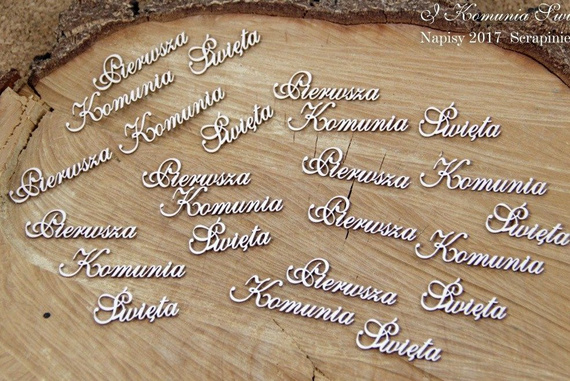 I Komunia Świę
Napisy 2017 Serapinie
Pierwsza Święta
Komunia
Komunia
Święta
Pierwsza
Pierwsza
Komunia Święta
Pierwsza
Komunia
Święta
Pierwsza Komunia
Święta
Pierwsza
Komunia
Święta
Pierwsza
Komunia
Pierwsza Święta
Komunia
Święta